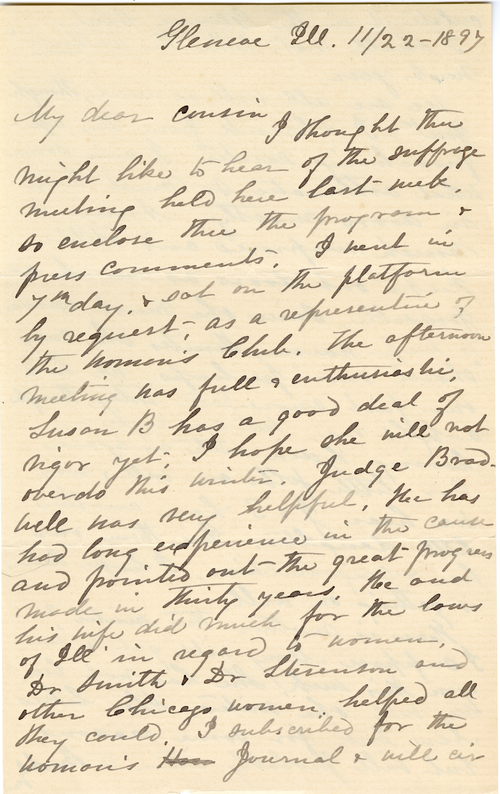 Glencoe Ill. 11/22-1897
My dear cousin
I thought thee
might like to hear of the suffrage
meeting held here last week,
so enclose thee the program &
press comments. I went in
7th day, & sat on the platform
by request, as a representive of
the Woman's Club. The afternoon
meeting was full & enthusiastic,
Susan B has a good deal of
vigor yet, I hope she will not
overdo this winter. Judge Brad-
well was very helpful, He has
had long experience in the cause
and pointed out the great progress
made in thirty years, He and
his wife did much for the laws
of Ill in regard to women.
Dr Smith & Dr Stevenson and
other Chicago women helped all
they could. I subscribed for the
Woman's Journal & will cir